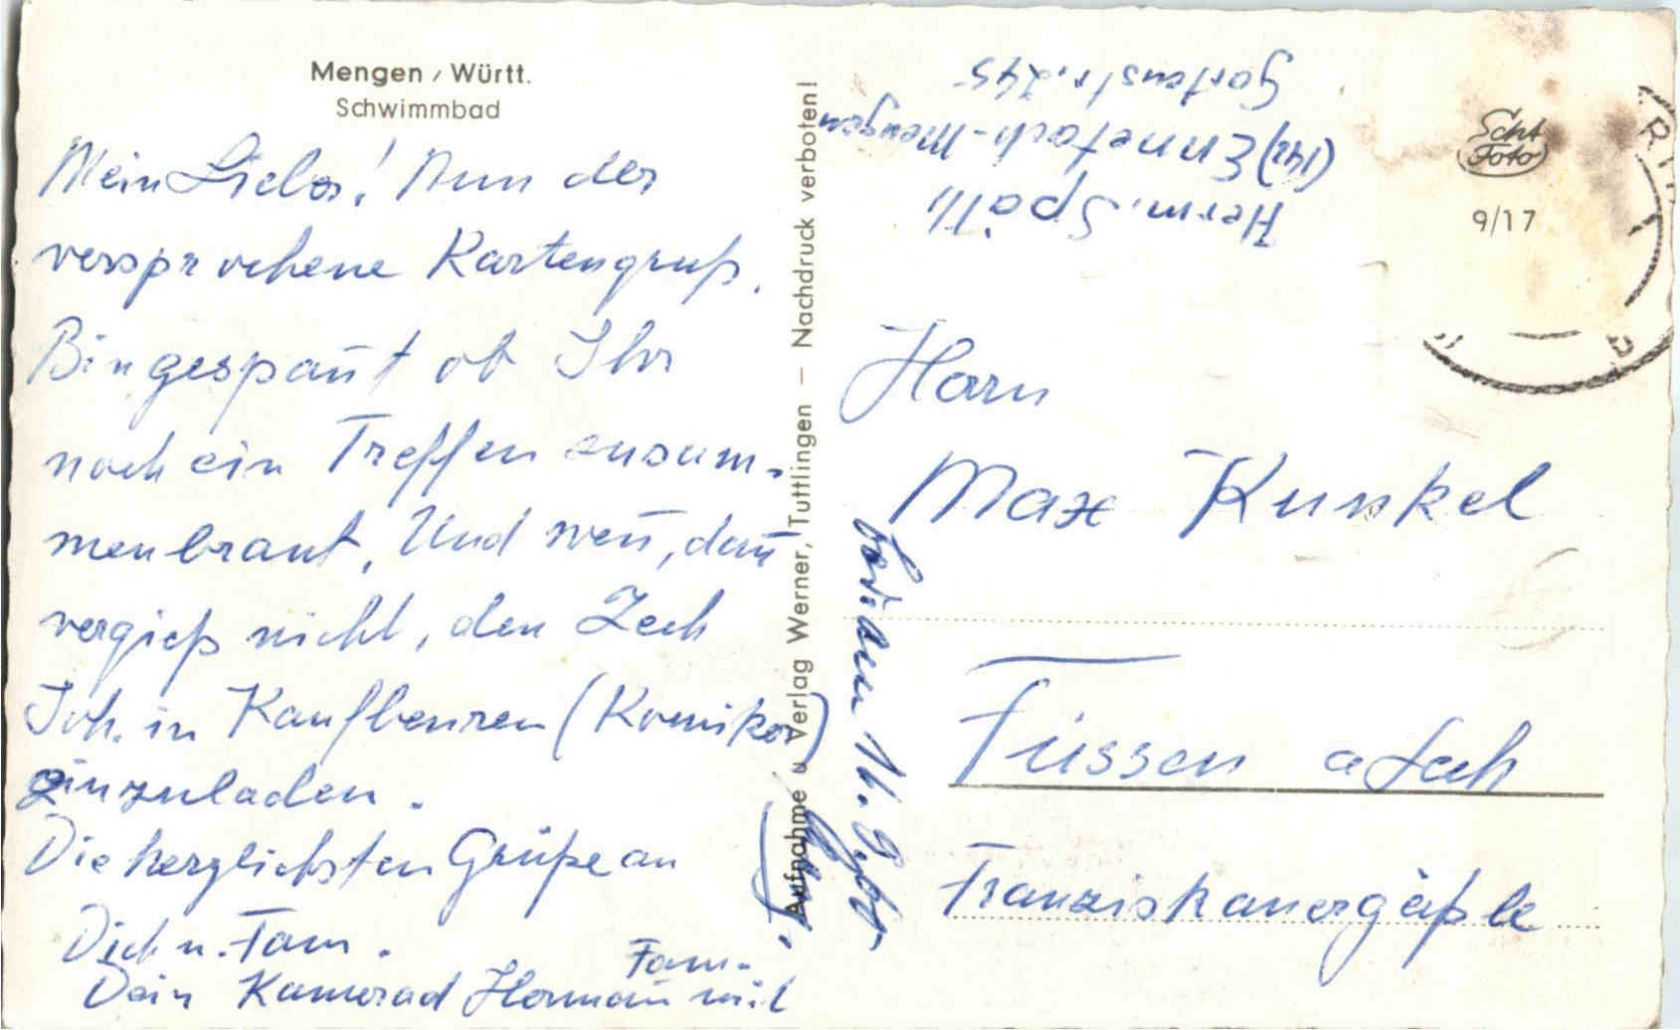 Mengen / Württ.
Schwimmbad
Mein Lieber! Nun der
versprochene Kartengruß.
Bin gespañt ob Ihr
noch ein Treffen zusam-
menbraut. Und weñ, dañ
vergieß nicht, den Zech
Joh. in Kaufbeuren (Komiker)
einzuladen.
Die herzlichsten Grüße an
Dich u. Fam.
Dein Kamerad Hermañ mit
Fam.
Aufnahme u. Verlag Werner, Tuttlingen - Nachdruck verboten!
Herm. Späth
(14b) Ennetach-Mengen
Gartenstr. 245
Scht
Foto
9/17
Herrn
Max Kunkel
Füssen a Lech
Franziskanergäßle